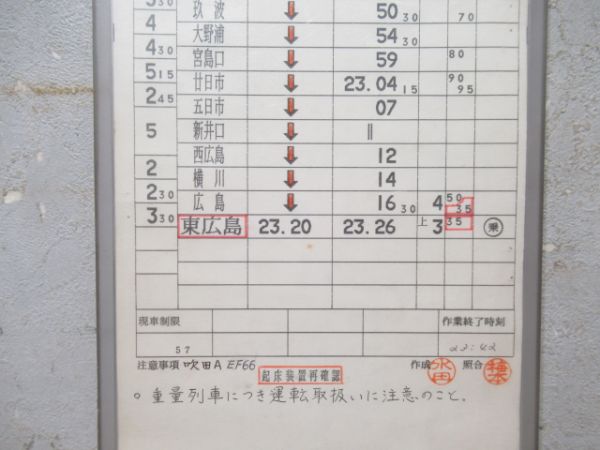 3 30 玖波 ↓ 50 30 70
4 大野浦 ↓ 54 30
4 30 宮島口 ↓ 59 80
5 15 廿日市 ↓ 23.04 15 90 95
2 45 五日市 ↓ 07
5 新井口 ↓ ||
西広島 ↓ 12
2 横川 ↓ 14
2 30 広島 ↓ 16 30 4 50 35
3 30 東広島 23.20 23.26 上 3 35 乗
現車制限 作業終了時刻
57 22:42
注意事項 吹田A EF66 起床装置再確認 作成 照合
○ 重量列車につき運転取扱いに注意のこと。